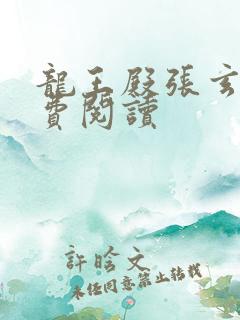 龍王殿張玄
費閱讀
許晗文
未經同意禁止轉載